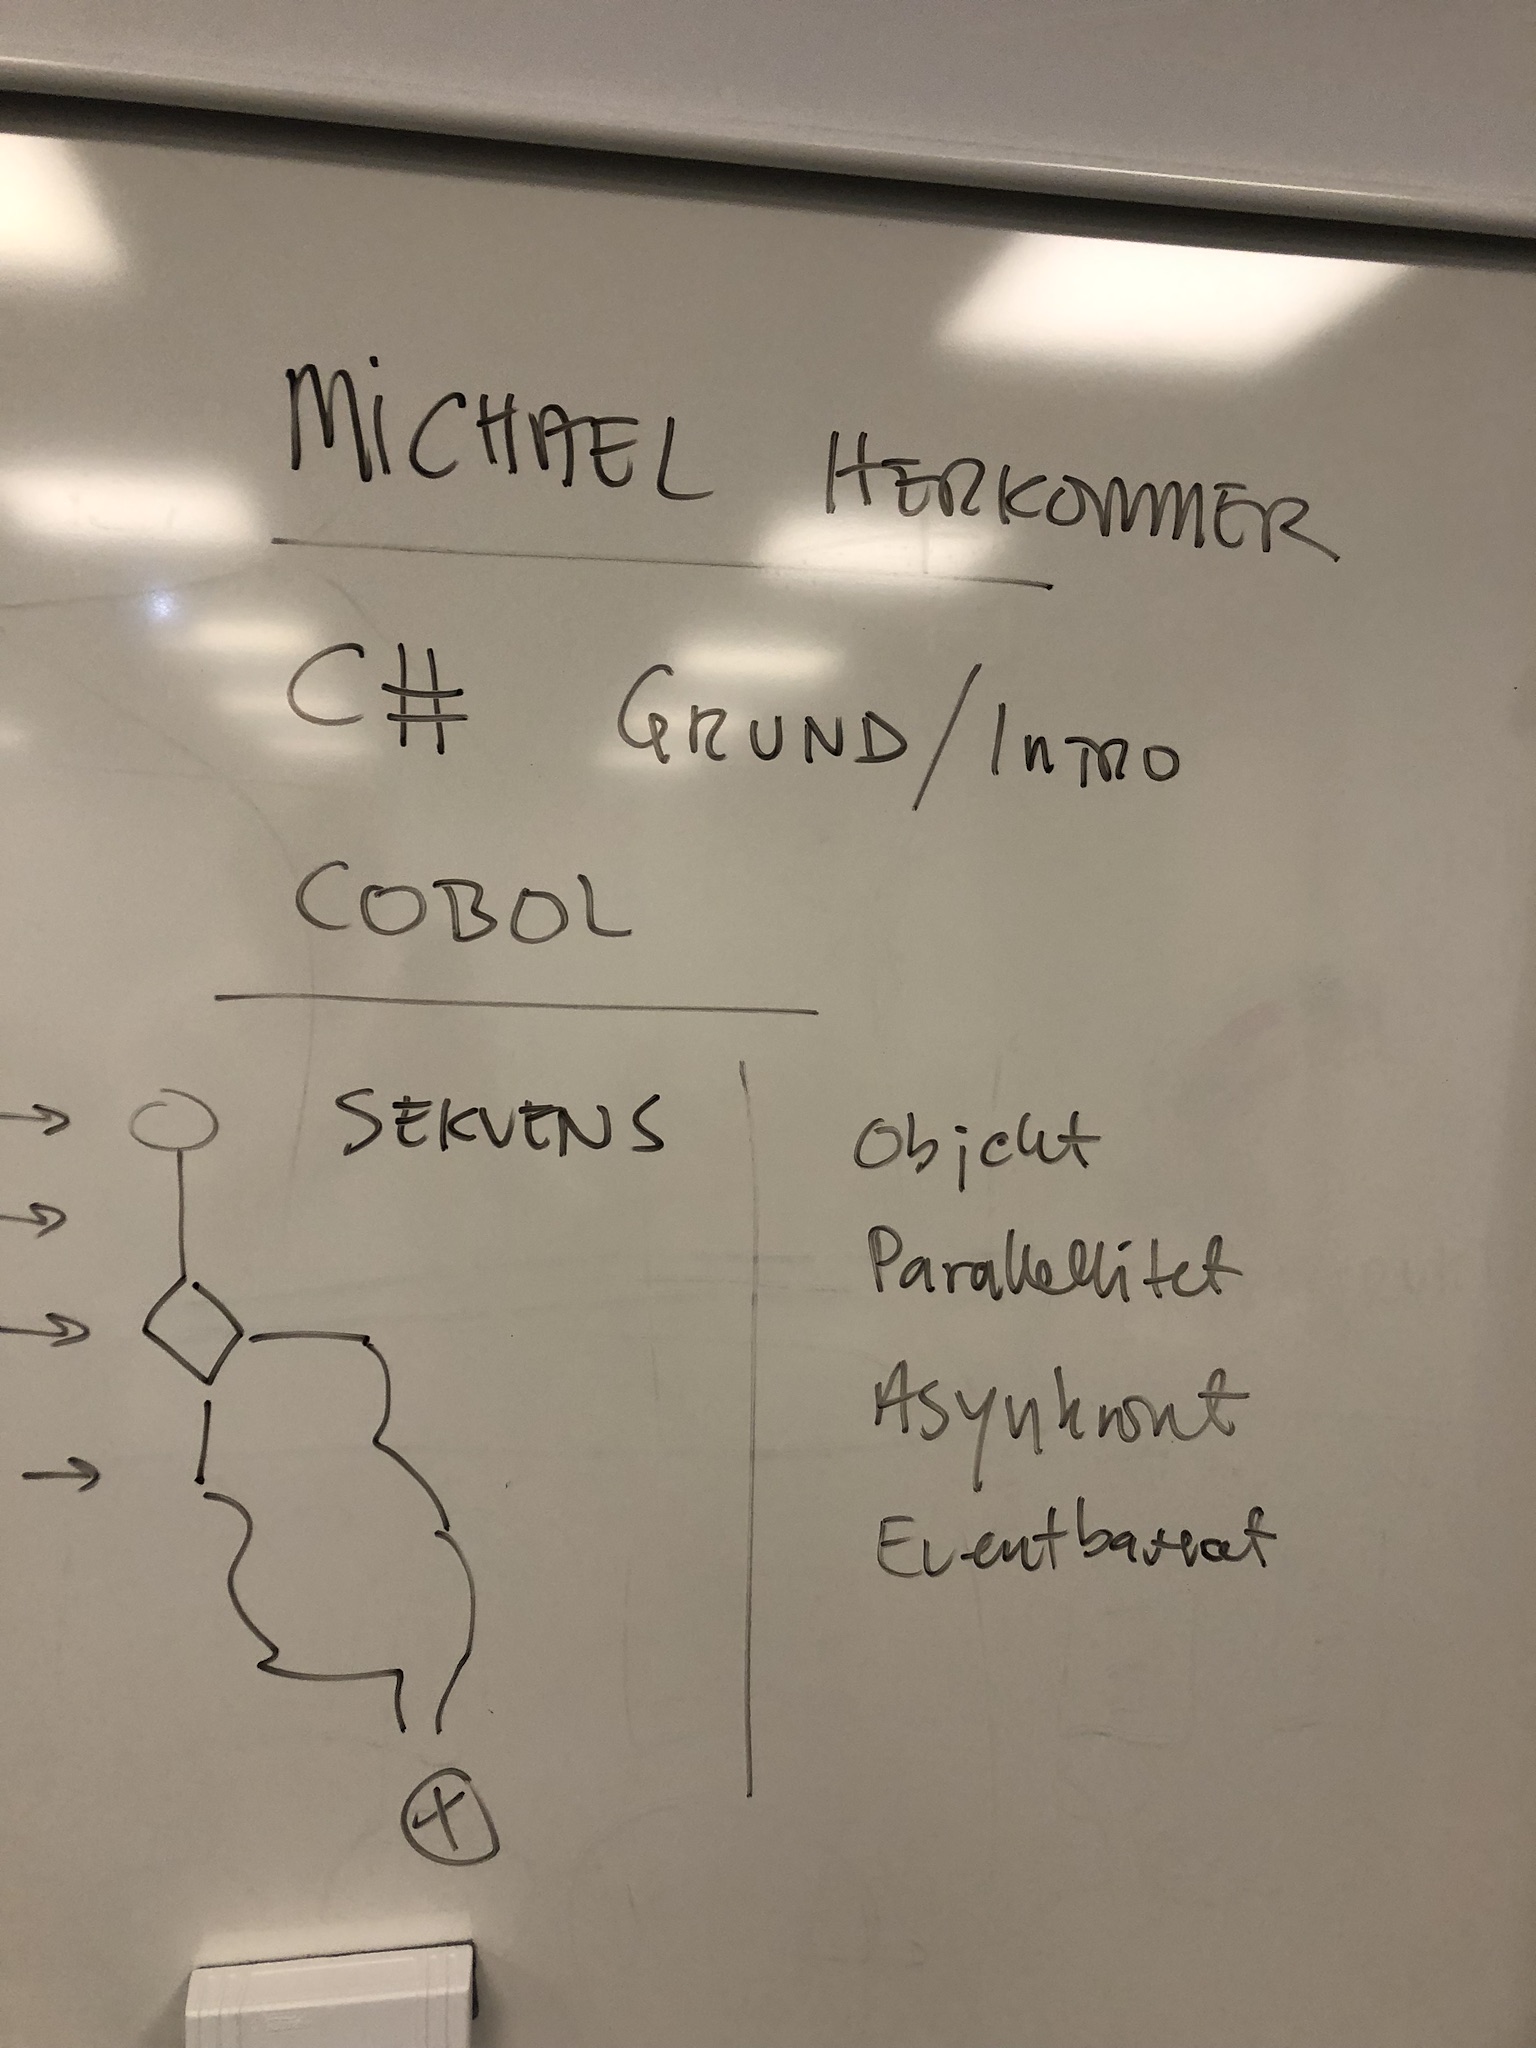 MiCHAEL HERKOMMER
C# GRUND/INTRO
COBOL
SEKVENS
Objekt
Parallellitet
Asynkront
Eventbaserat